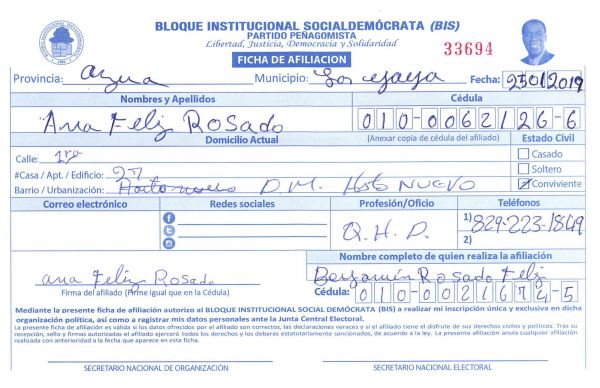 BLOQUE INSTITUCIONAL SOCIALDEMÓCRATA (BIS)
PARTIDO PEÑAGOMISTA
Libertad, Justicia, Democracia y Solidaridad
FICHA DE AFILIACION
33694
Provincia: Azua Municipio: Fecha: 25012019
Nombres y Apellidos Cédula
Ana Feliz ROSADO 010-0062126-6
Domicilio Actual (Anexar copia de cédula del afiliado) Estado Civil
Calle: 1ra Casado
#Casa / Apt. / Edificio: 27 Soltero
Barrio / Urbanización: D.M. NUEVO Conviviente
Correo electrónico Redes sociales Profesión/Oficio Teléfonos
Q.H.D. 1) 829-223-1849
2)
Nombre completo de quien realiza la afiliación
Ana Feliz Rosado Benjamín Rosado Feliz
Firma del afiliado (Firme igual que en la Cédula) Cédula: 010-0021674-5
Mediante la presente ficha de afiliación autorizo al BLOQUE INSTITUCIONAL SOCIAL DEMÓCRATA (BIS) a realizar mi inscripción única y exclusiva en dicha
organización política, así como a registrar mis datos personales ante la Junta Central Electoral.
La presente ficha de afiliación es válida si los datos ofrecidos por el afiliado son correctos, las declaraciones veraces y si el afiliado tiene el disfrute de sus derechos civiles y políticos. Tras su
recepción, sello y firmas autorizadas el afiliado ejercerá todos los derechos y los deberes estatutariamente sancionados, de acuerdo a la ley. La presente afiliación anula cualquier afiliación
realizada con anterioridad a la fecha que aparece en esta ficha.
SECRETARIO NACIONAL DE ORGANIZACIÓN SECRETARIO NACIONAL ELECTORAL